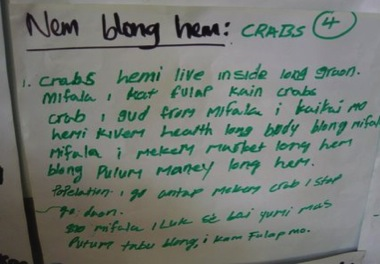 Nem blong hem: CRABS 4
1. crabs hemi live inside long graon.
Mifala i kat fulap kain crabs
crab i gud from mifala i kaikai mo
hemi kivem health long body blong mifal
mifala i mekem market long hem
blong pulum maney long hem.
Popelation i go antap mekem crab i stap
go daon.
mifala i luk se bai yumi mas
putum tabu blong i kam fulap mo.